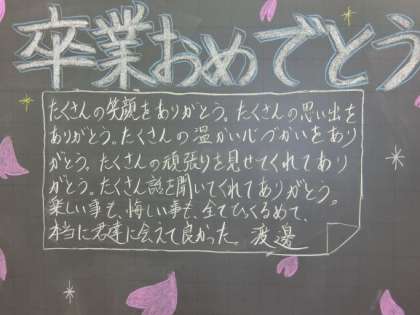 卒業おめでとう
たくさんの笑顔をありがとう。たくさんの思い出を
ありがとう。たくさんの温かい心づかいをあり
がとう。たくさんの頑張りを見せてくれてあり
がとう。たくさん話を聞いてくれてありがとう。
楽しい事も、悔しい事も、全てひっくるめて、
本当に君達に会えて良かった。渡邊